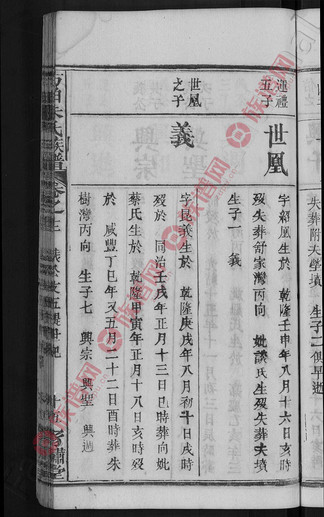 失葬附夫學墳 生子二俱早逝
運禮五子
世凰
字朝凰生於 乾隆壬申年八月十六日亥時
歿失葬舒家灣丙向 妣談氏生歿失葬夫墳
生子一 義
世凰之子
義
字昆義生於 乾隆庚戌年八月初十日戌時
歿於 同治壬戌年正月十三日巳時葬向妣
蔡氏生於 乾隆甲寅年正月十八日亥時歿
於 咸豐丁巳年又五月二十二日酉時葬朱
樹灣丙向 生子七 興宗 興聖 興週
朱氏族譜
卷之三
族譜网